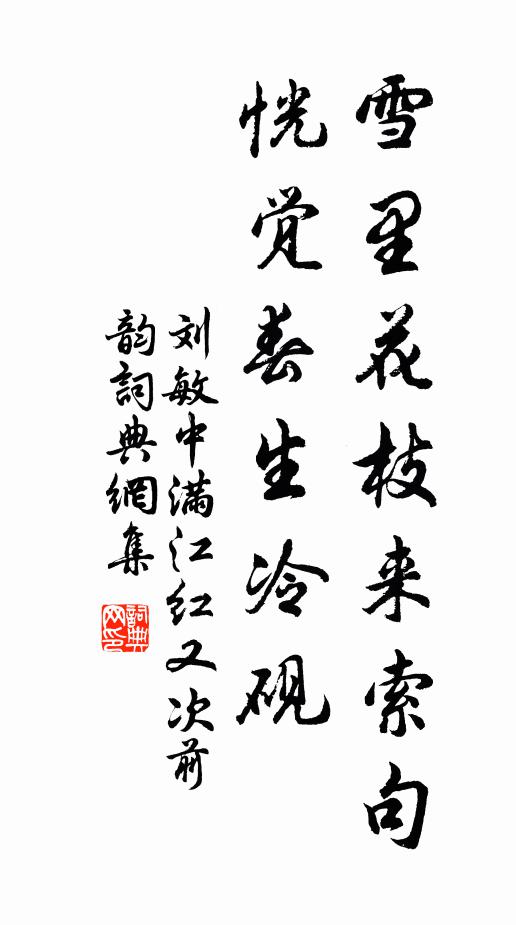 雪里花枝来索句
恍觉春生冷砚
刘敏中满江红又次前
韵詞典網集
詞典
网印